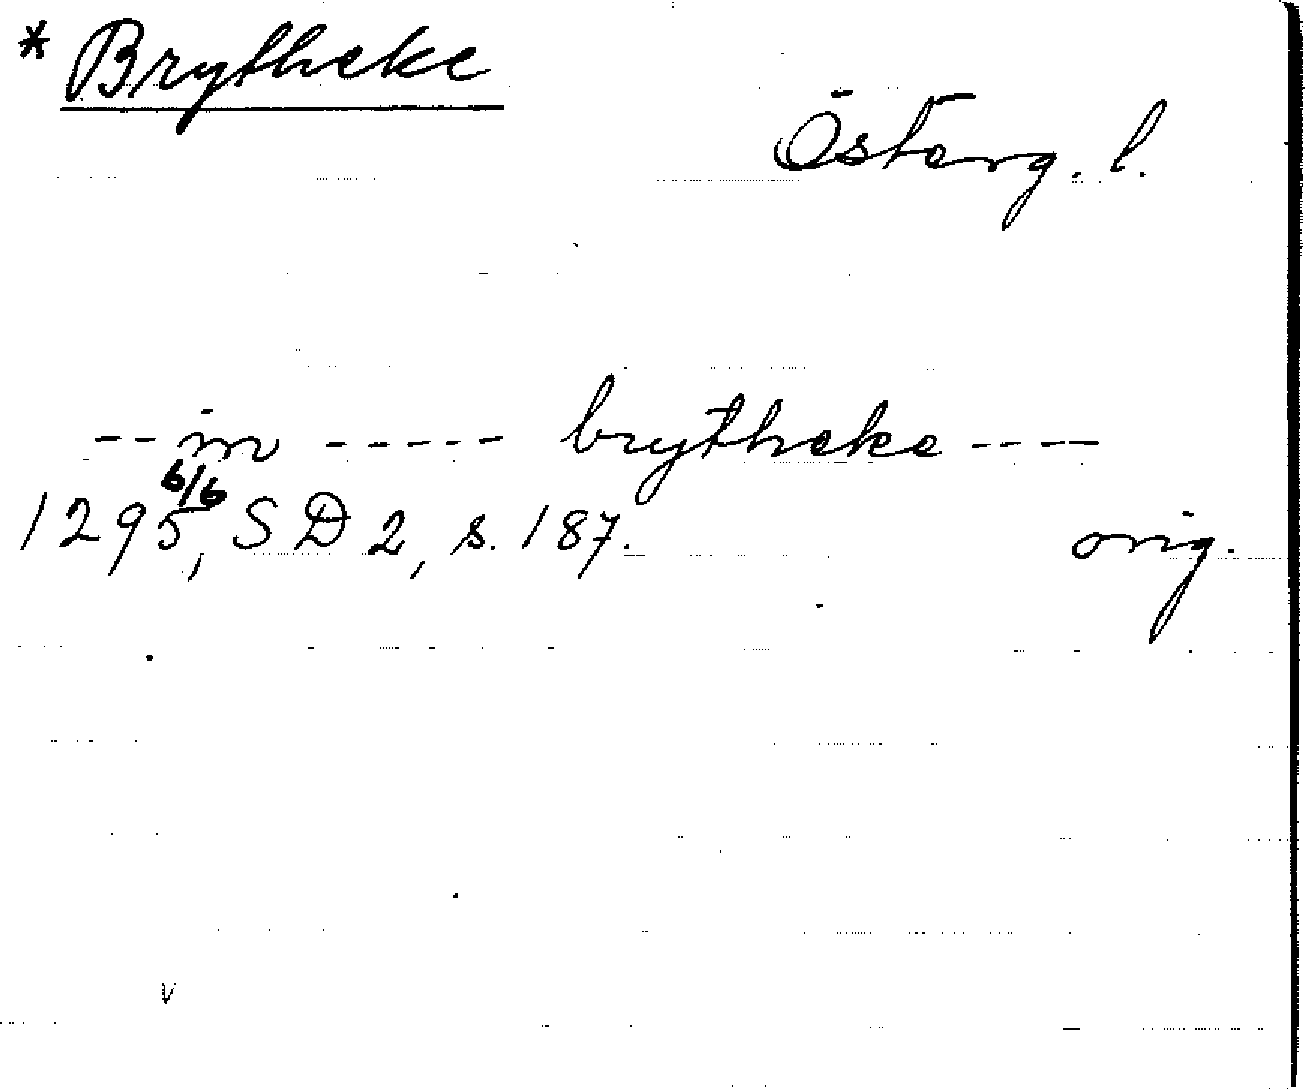 * Brytheke
Österg. l.
--in ----- brytheke ----
6/6
1295, SD 2, s. 187. orig.
v